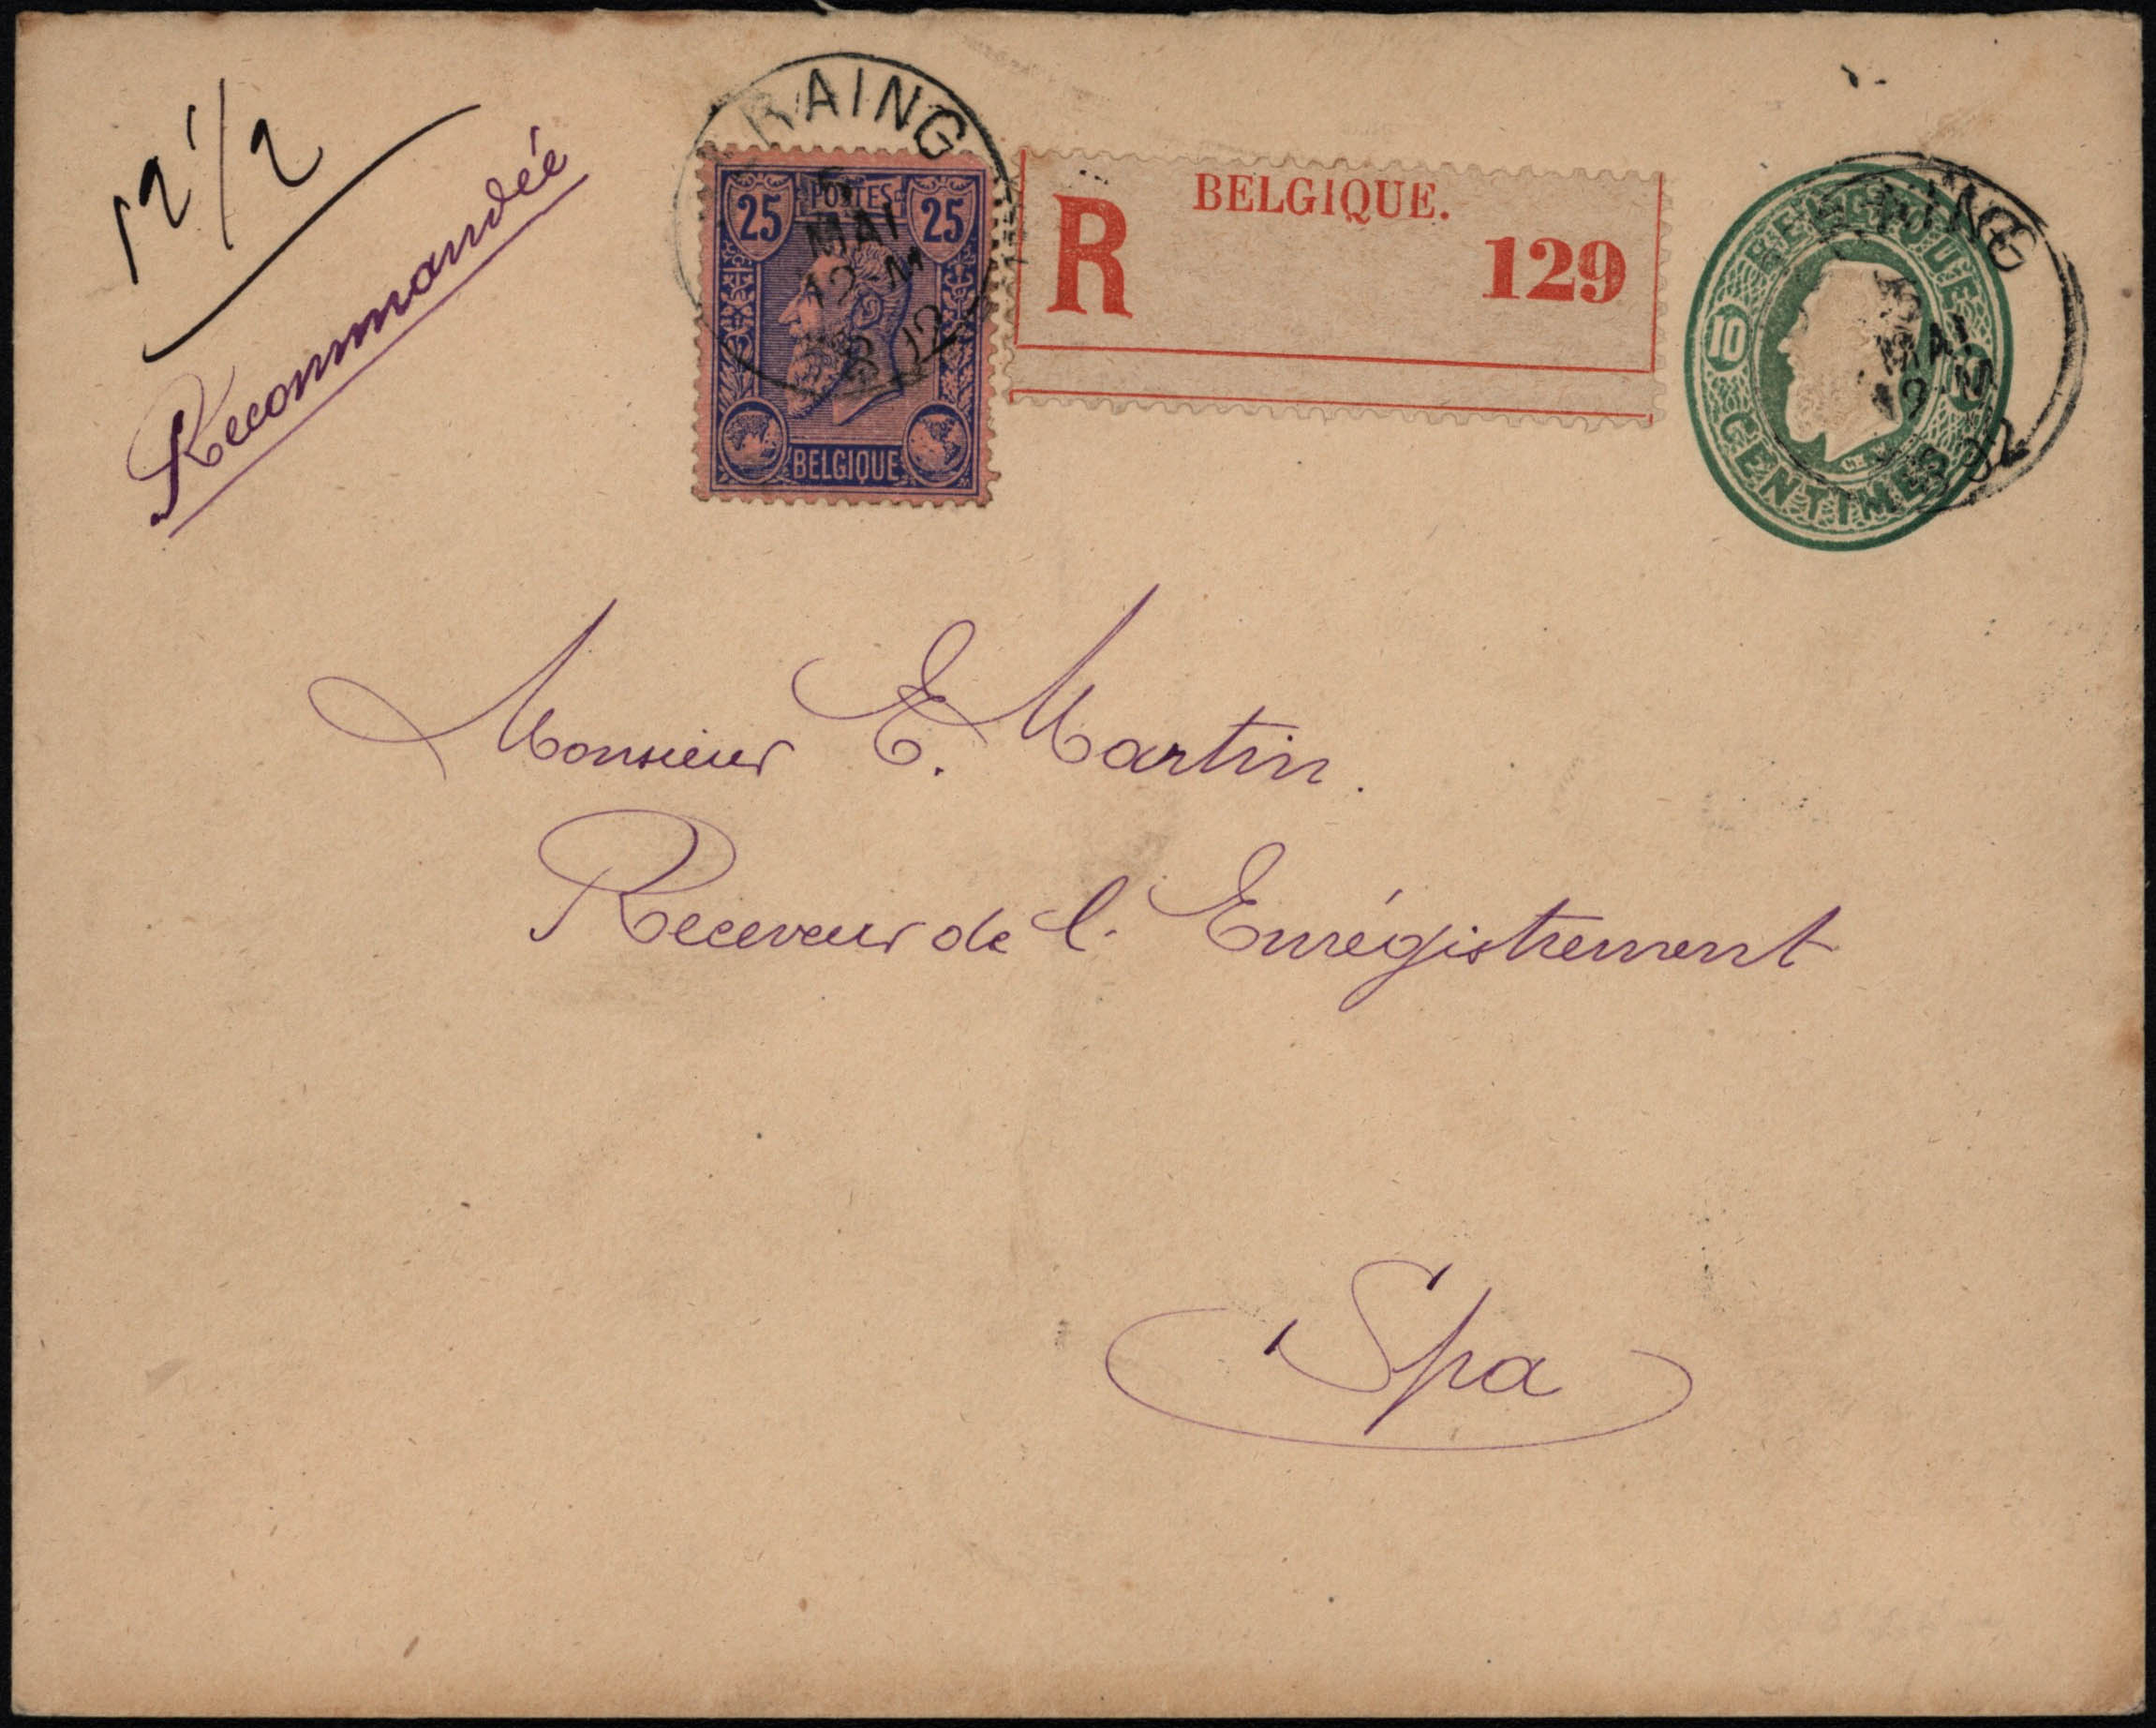 12 1/2
Recommandée
RAING
5
MAI
12-M
25 POSTES 25
BELGIQUE
BELGIQUE.
R 129
BELGIQUE
10
CENTIMES
RAING
5
MAI
12-M
Monsieur E. Martin.
Receveur de l. Enrégistrement
Spa